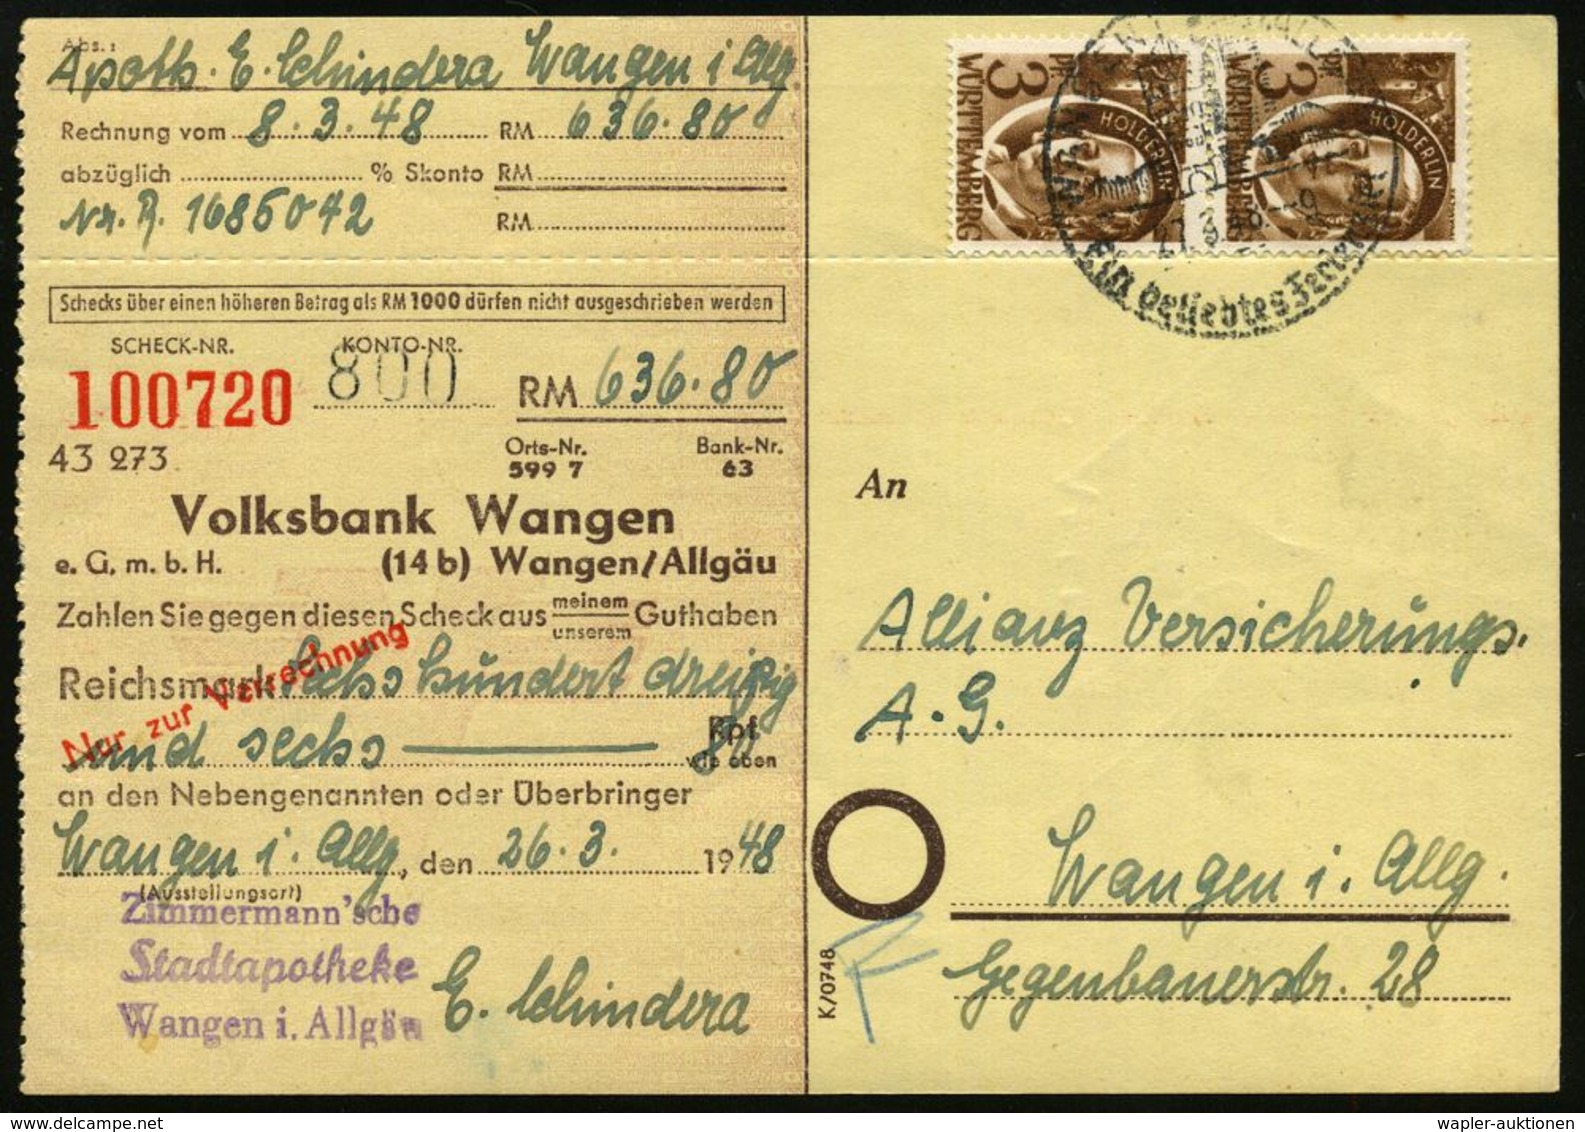 Abs.:
Apoth. E. Schindera Wangen i Allg
Rechnung vom 8.3.48 RM 636.80
abzüglich % Skonto RM
Nr. R. 1685042 RM
Schecks über einen höheren Betrag als RM 1000 dürfen nicht ausgeschrieben werden
SCHECK-NR. KONTO-NR.
100720 800 RM 636.80
43 273
Orts-Nr. Bank-Nr.
599 7 63
Volksbank Wangen
e. G. m. b. H. (14 b) Wangen/Allgäu
Zahlen Sie gegen diesen Scheck aus meinem Guthaben
unserem
Reichsmark Sechshundert dreißig
Nur zur Verrechnung
und sechs Rpf
80 wie oben
an den Nebengenannten oder Überbringer
Wangen i. Allg, den 26.3. 1948
(Ausstellungsort)
Zimmermann'sche
Stadtapotheke
Wangen i. Allgäu
E. Schindera
3 WÜRTTEMBERG HÖLDERLIN
3 Pf WÜRTTEMBERG HÖLDERLIN
27.3.48
Ein beliebtes
An
Allianz Versicherungs.
A.G.
Wangen i. Allg.
Gegenbauerstr. 28
K/0748
wapler-auktionen